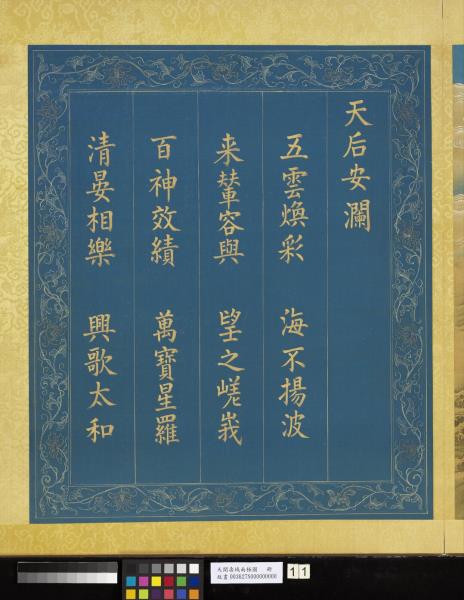 天后安瀾
五雲煥彩 海不揚波
来輦容與 望之嵯峩
百神效績 萬寶星羅
清晏相樂 興歌太和
故畫 003627S000000000
11